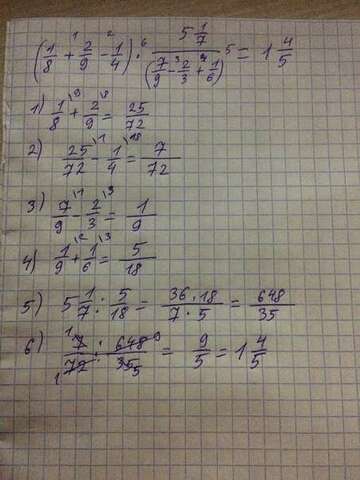 (1/8 + 2/9 - 1/4) : 5 1/7 / (7/9 - 2/3 + 1/6) = 1 4/5
1) 1/8 + 2/9 = 25/72
2) 25/72 - 1/4 = 7/72
3) 7/9 - 2/3 = 1/9
4) 1/9 + 1/6 = 5/18
5) 5 1/7 : 5/18 = 36·18/7·5 = 648/35
6) 7/72 : 648/35 = 9/5 = 1 4/5